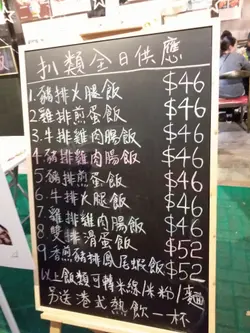 扒類全日供應
1.豬排火腿飯 $46
2.雞排煎蛋飯 $46
3.牛排雞肉腸飯 $46
4.豬排雞肉腸飯 $46
5.豬排煎蛋飯 $46
6.牛排火腿飯 $46
7.雞排雞肉腸飯 $46
8.雙排滑蛋飯 $52
9.香煎豬排鳳尾蝦飯 $52
以上飯類可轉米線/米粉/麵
另送港式熱飲一杯